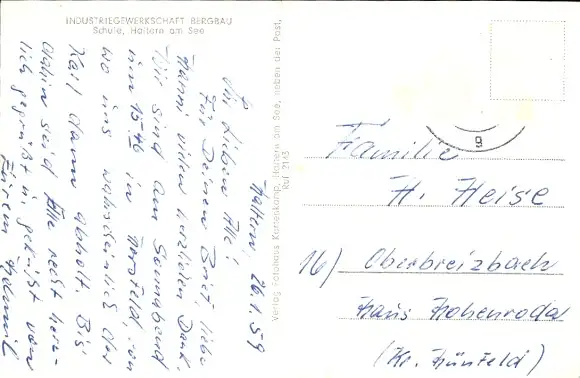 INDUSTRIEGEWERKSCHAFT BERGBAU
Schule, Haltern am See
Haltern, 26.1.59
Ihr lieben Alle!
Für Deinen Brief, liebe
Hanni vielen herzlichen Dank.
Wir sind am Sonnabend
um 15.46 in Hersfeld, von
wo uns wahrscheinlich der
Karl dann abholt. Bis
dahin seid Alle recht herz-
lich gegrüßt u. geküßt von
Eurem Helmut
Verlag Fotohaus Kortenkamp, Haltern am See, neben der Post,
Ruf 2143
9
Familie
H. Heise
16) Oberbreizbach
Haus Hohenroda
(Kr. Hünfeld)